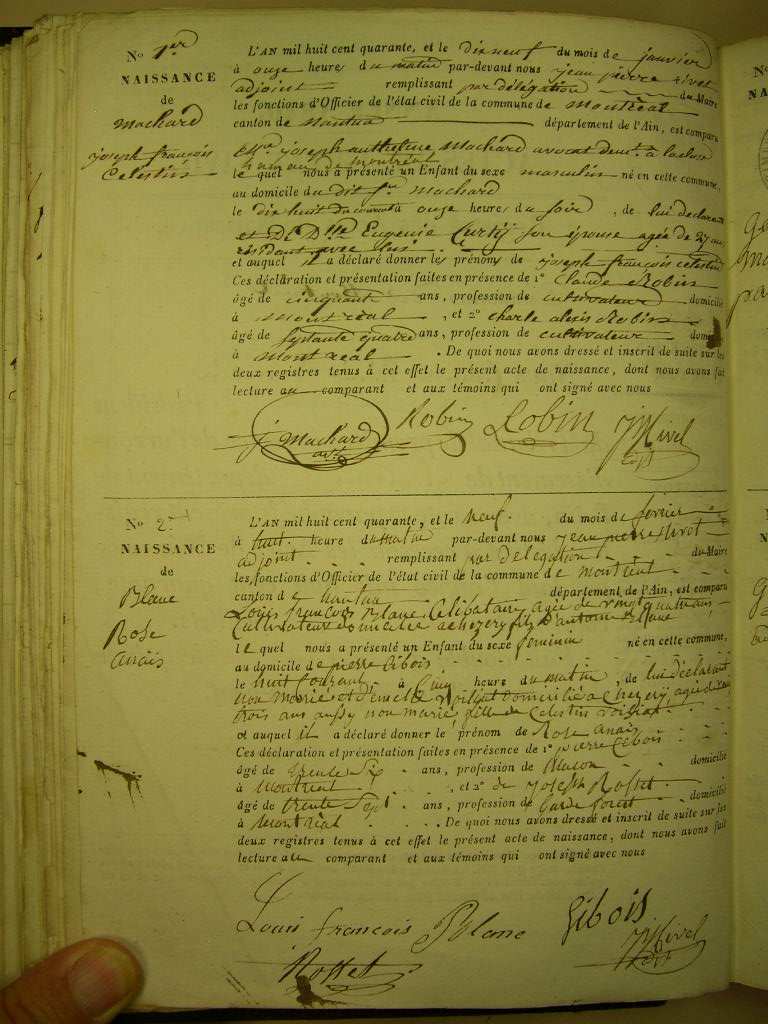 No 1er
NAISSANCE
de
Machard
joseph françois
Celestin
L'AN mil huit cent quarante, et le dix neuf du mois de janvier
à onze heures du matin par-devant nous jean pierre
adjoint remplissant par délégation du Maire
les fonctions d'Officier de l'état civil de la commune de Montréal
canton de Nantua département de l'Ain, est comparu
joseph Machard avocat
le quel nous a présenté un Enfant du sexe masculin né en cette commune,
au domicile du dit Sr Machard
le dix huit du courant à onze heures du soir, de lui déclarant
et De Dlle Eugenie son épouse agée de 27 ans
résidant avec lui
et auquel il a déclaré donner les prénoms de joseph françois celestin
Ces déclaration et présentation faites en présence de 1o Claude Robin
âgé de cinquant ans, profession de cultivateur domicilié
à Montréal, et 2o charle alexis Robin
âgé de septante quatre ans, profession de cultivateur domicilié
à Montreal. De quoi nous avons dressé et inscrit de suite sur les
deux registres tenus à cet effet le présent acte de naissance, dont nous avons fait
lecture au comparant et aux témoins qui ont signé avec nous
J Machard
Robin Robin
No 2
NAISSANCE
de
Blanc
Rose
anaïs
L'AN mil huit cent quarante, et le neuf du mois de fevrier
à huit heure du matin par-devant nous jean pierre
adjoint remplissant par délégation du Maire
les fonctions d'Officier de l'état civil de la commune de Montreal
canton de Nantua département de l'Ain, est comparu
Louis françois Blanc Celibataire agée de vingt quatre ans
Cultivateur domicilié a chezery fils d'antoine Blanc
le quel nous a présenté un Enfant du sexe feminin né en cette commune,
au domicile de pierre Gibois
le huit Courant à Cinq heure du matin, de lui déclarant
non Marié et domicilié a Chezery, agée de
trois ans aussy non marié fille de Celestin
et auquel il a déclaré donner le prénom de Rose anaïs
Ces déclaration et présentation faites en présence de 1o pierre Gibois
âgé de trente six ans, profession de Maçon domicilié
à Montreal, et 2o de joseph Rosset
âgé de trente sept ans, profession de Garde forest domicilié
à Montréal. De quoi nous avons dressé et inscrit de suite sur les
deux registres tenus à cet effet le présent acte de naissance, dont nous avons fait
lecture au comparant et aux témoins qui ont signé avec nous
Louis françois Blanc Gibois
Rosset